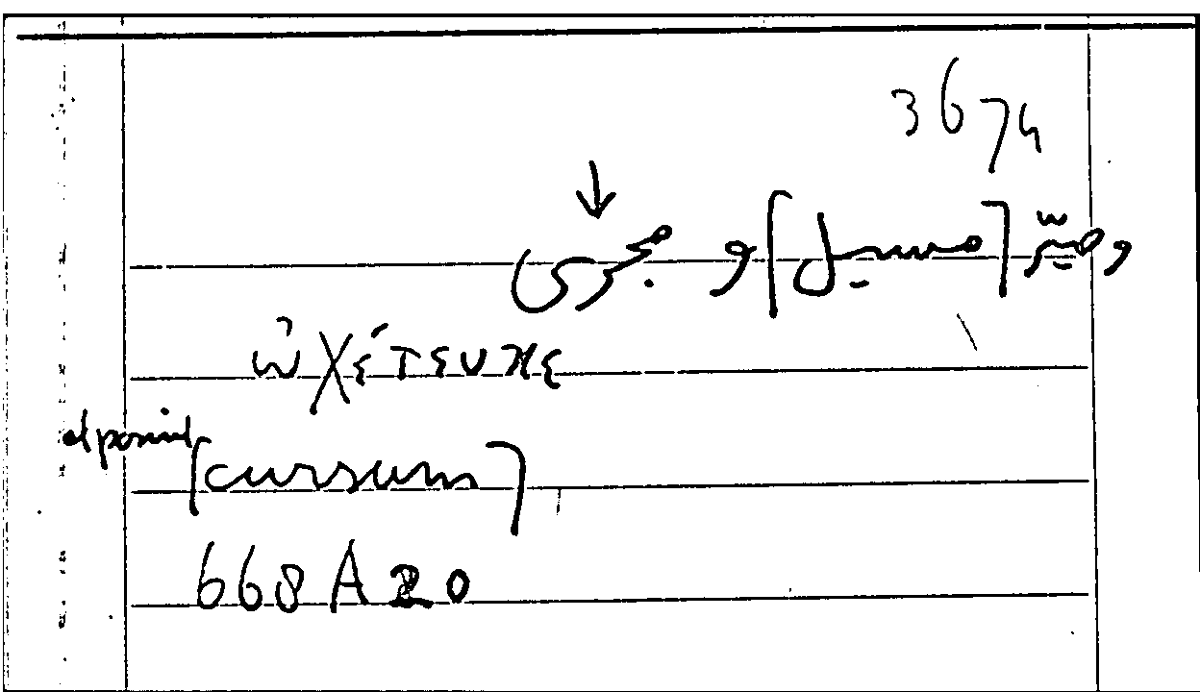 3674
↓
وصيّر [مسيل] و مجرى
ὠχέτευκε
et posuit [cursum]
668 A 20